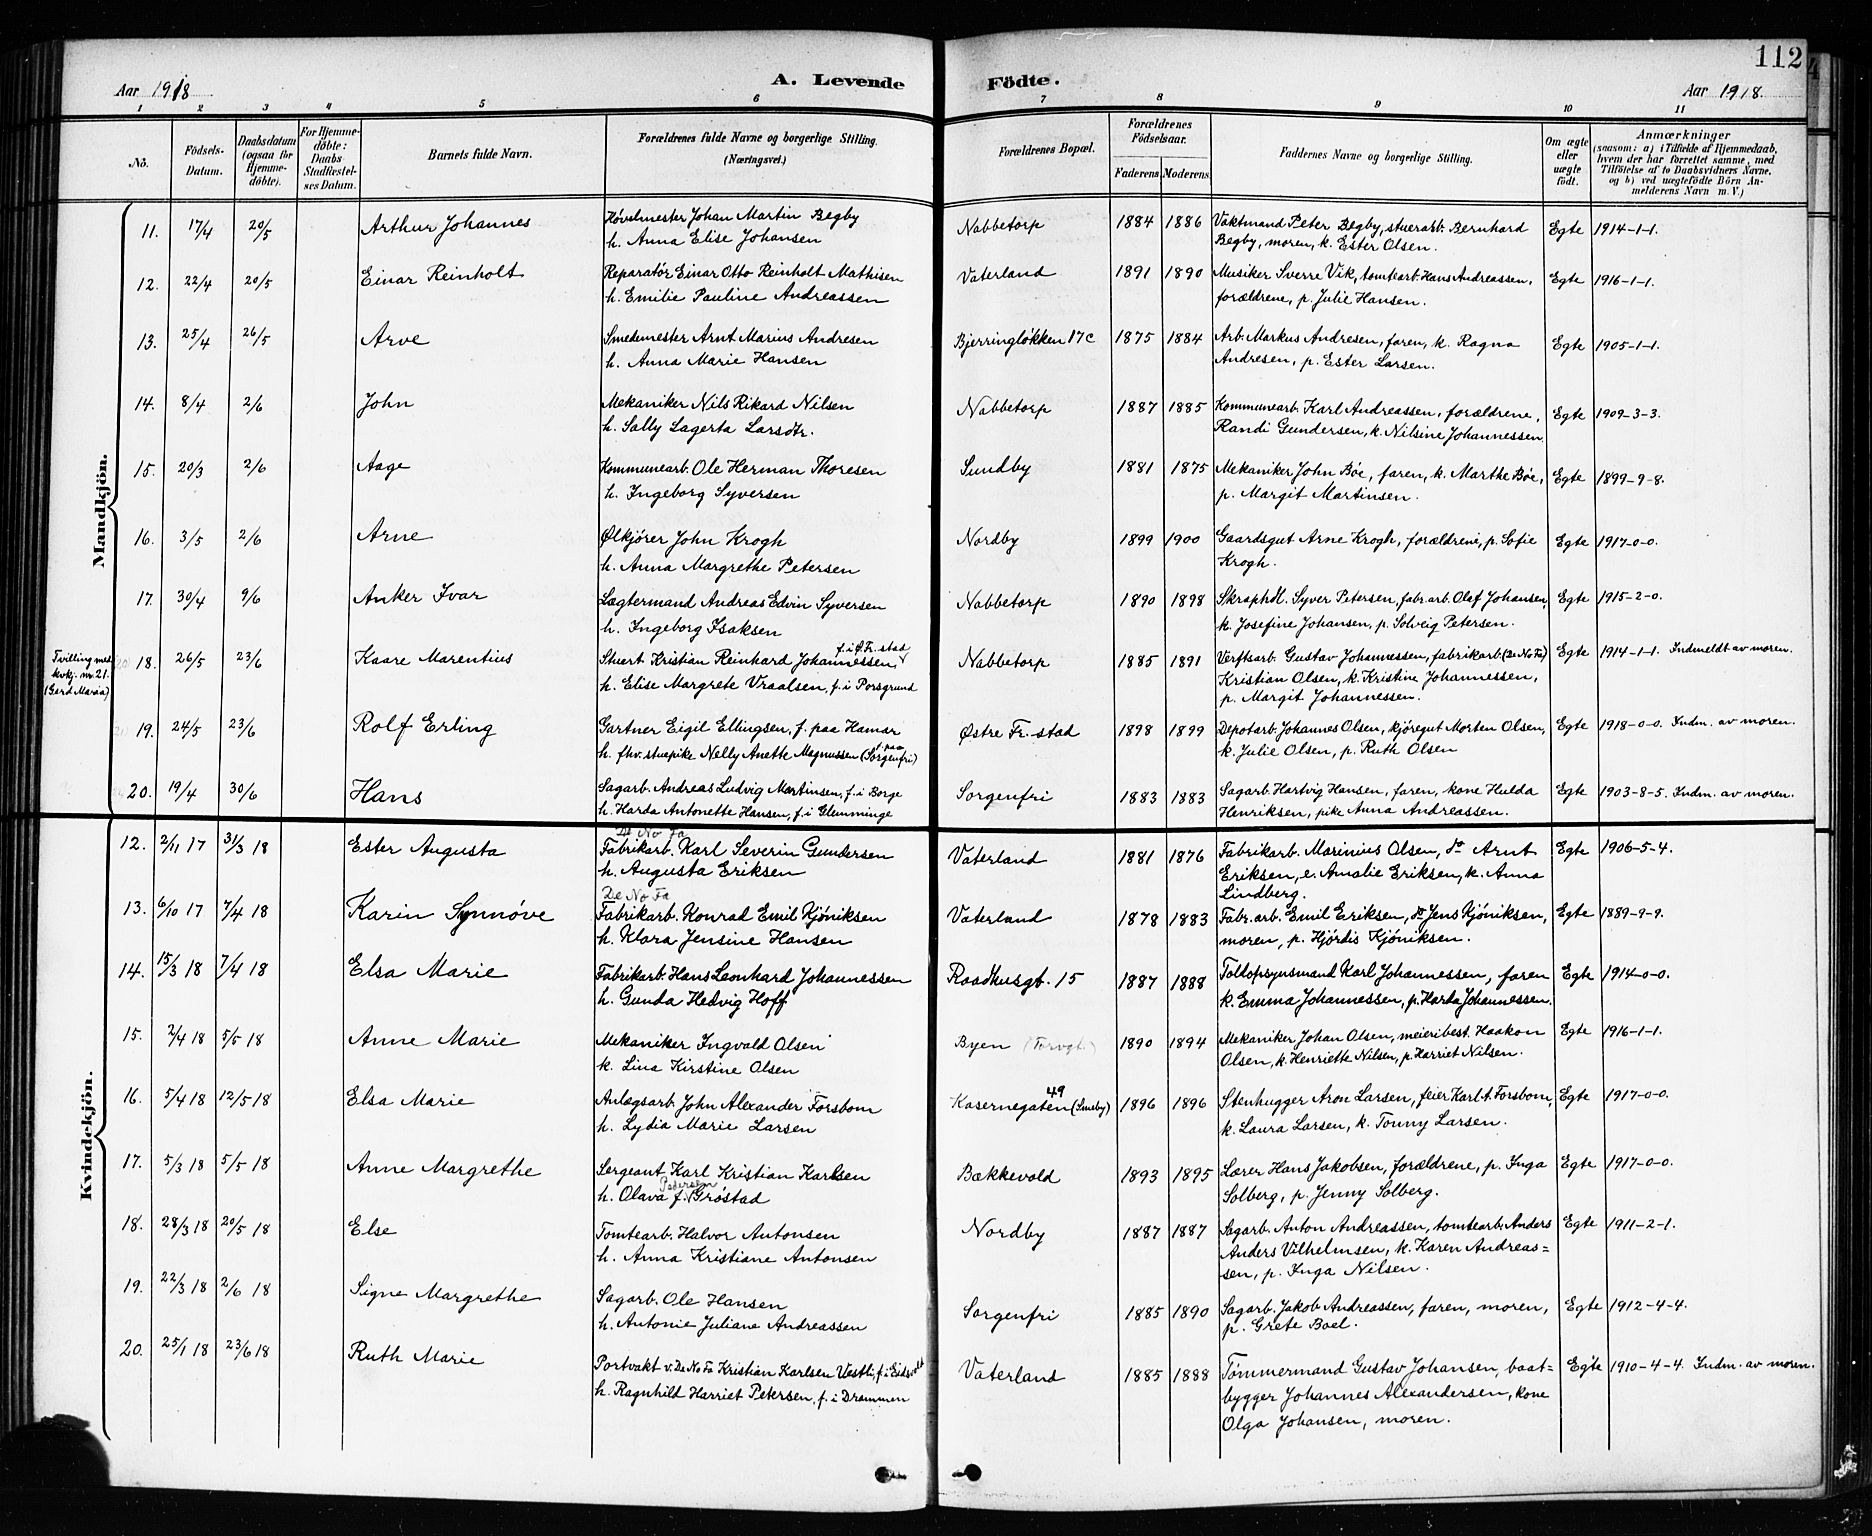 112
Aar 1918
A. Levende
Födte.
Aar 1918.
1 2 3 4 5 6 7 8 9 10 11
No.
Födsels-Datum.
Daabsdatum (ogsaa for Hjemmedöbte).
For Hjemmedöbte: Daabs Stadfestelses Datum.
Barnets fulde Navn.
Forældrenes fulde Navne og borgerlige Stilling. (Næringsvei.)
Forældrenes Bopæl.
Forældrenes Födselsaar.
Faderens
Moderens
Faddernes Navne og borgerlige Stilling.
Om ægte eller uægte födt.
Anmærkninger (saasom: a) i Tilfælde af Hjemmedaab, hvem der har forrettet samme, med Tilföielse af to Daabsvidners Navne. og b) ved uægtefödte Börn Anmelderens Navn m. V.)
Mandkjön.
11. 17/4 20/5 Arthur Johannes Høvelmester Johan Martin Begby Nabbetorp 1884 1886 Vaktmand Peter Begby, stuerarb. Bernhard Egte 1914-1-1.
h. Anna Elise Johansen Begby, moren, k. Ester Olsen.
12. 22/4 20/5 Einar Reinholt Reparatör Einar Otto Reinholt Mathisen Vaterland 1891 1890 Musiker Sverre Vik, tomtearb. Hans Andreassen, Egte 1916-1-1.
h. Emilie Pauline Andreassen forældrene, p. Julie Hansen.
13. 25/4 26/5 Arve Smedemester Arnt Marius Andresen Bjerringløkken 17c 1875 1884 Arb. Markus Andresen, faren, k. Ragna Egte 1905-1-1.
h. Anna Marie Hansen Andresen, p. Ester Larsen.
14. 8/4 2/6 John Mekaniker Nils Rikard Nilsen Nabbetorp 1887 1885 Kommunearb. Karl Andreassen, forældrene, Egte 1909-3-3.
h. Sally Lagerta Larsdtr. Randi Gundersen, k. Nilsine Johannessen.
15. 20/3 2/6 Aage Kommunearb. Ole Herman Thoresen Sundby 1881 1875 Mekaniker John Bøe, faren, k. Marthe Bøe, Egte 1899-9-8.
h. Ingeborg Syversen p. Margit Martinsen.
16. 3/5 2/6 Arne Ølkjører John Krogh Nordby 1899 1900 Gaardsgut Arne Krogh, forældrene, p. Sofie Egte 1917-0-0.
h. Anna Margrethe Petersen Krogh.
17. 30/4 9/6 Anker Ivar Lægtermand Andreas Edvin Syversen Nabbetorp 1890 1898 Skraphdl. Syver Petersen, fabr.arb. Olaf Johansen, Egte 1915-2-0.
h. Ingeborg Isaksen k. Josefine Johansen, p. Solveig Petersen.
Tvilling med kvkj. nr. 21. (Gerd Maria)
f. i Ø. Fr.stad
18. 26/5 23/6 Kaare Marentius Stuert Kristian Reinhard Johannessen Nabbetorp 1885 1891 Verftsarb. Gustav Johannessen, fabrikarb. (De No Fa) Egte 1914-1-1. Indmeldt av moren.
h. Elise Margrete Vraalsen, f. i Porsgrund Kristian Olsen, k. Kristine Johannessen,
p. Margit Johannessen.
19. 24/5 23/6 Rolf Erling Gartner Eigil Ellingsen, f. paa Hamar Østre Fr.stad 1898 1899 Depotarb. Johannes Olsen, kjøregut Morten Olsen, Egte 1918-0-0. Indm. av moren.
h. fhv. stuepike Nelly Anette Magnussen (f. paa Sorgenfri) k. Julie Olsen, p. Ruth Olsen
20. 19/4 30/6 Hans Sagarb. Andreas Ludvig Martinsen, f. i Borge Sorgenfri 1883 1883 Sagarb. Hartvig Hansen, faren, kone Hulda Egte 1903-8-5. Indm. av moren.
h. Harda Antonette Hansen, f. i Glemminge Henriksen, pike Anna Andreassen.
Kvindekjön.
De No Fa
12. 2/11 17 31/3 18 Ester Augusta Fabrikarb. Karl Severin Gundersen Vaterland 1881 1876 Fabrikarb. Marinius Olsen, do Arnt Egte 1906-5-4.
h. Augusta Eriksen Eriksen, e. Amalie Eriksen, k. Anna
Lindberg.
De No Fa
13. 6/10 17 7/4 18 Karin Synnøve Fabrikarb. Konrad Emil Kjøniksen Vaterland 1878 1883 Fabr.arb. Emil Eriksen, do Jens Kjøniksen, Egte 1889-9-9.
h. Klara Jensine Hansen moren, p. Hjørdis Kjøniksen.
14. 15/3 18 7/4 18 Elsa Marie Fabrikarb. Hans Leonhard Johannessen Raadhusgt. 15 1887 1888 Toldopsynsmand Karl Johannessen, faren Egte 1914-0-0.
h. Gunda Hedvig Hoff k. Emma Johannessen, p. Harda Johannessen.
15. 2/4 18 5/5 18 Anne Marie Mekaniker Ingvald Olsen Byen (Torvgt.) 1890 1894 Mekaniker Johan Olsen, meieribest. Haakon Egte 1916-1-1.
k. Lina Kirstine Olsen Olsen, k. Henriette Nilsen, p. Harriet Nilsen.
16. 5/4 18 12/5 18 Elsa Marie Anlægsarb. John Alexander Forsbom Kasernegaten 49 (Smeby) 1896 1896 Stenhugger Aron Larsen, feier Karl A. Forsbom, Egte 1917-0-0.
h. Lydia Marie Larsen k. Laura Larsen, k. Tonny Larsen.
17. 5/3 18 5/5 18 Anne Margrethe Sergeant Karl Kristian Karlsen Bækkevold 1893 1895 Lærer Hans Jakobsen, forældrene, p. Inga Egte 1917-0-0.
h. Olava f. Pedersen Grøstad Solberg, p. Jenny Solberg.
18. 28/3 18 20/5 18 Else Tomtearb. Halvor Antonsen Nordby 1887 1887 Sagarb. Anton Andreassen, tomtearb. Anders Egte 1911-2-1.
h. Anna Kristiane Antonsen Anders Vilhelmsen, k. Karen Andreas=
sen, p. Inga Nilsen.
19. 22/3 18 2/6 18 Signe Margrethe Sagarb. Ole Hansen Sorgenfri 1885 1890 Sagarb. Jakob Andreassen, faren, moren, Egte 1912-4-4.
h. Antonie Juliane Andreassen p. Grete Boel.
20. 25/1 18 23/6 18 Ruth Marie Portvakt v. De No Fa Kristian Karlsen Vestli, f. i Eidsvold Vaterland 1885 1888 Tømmermand Gustav Johansen, baat= Egte 1910-4-4. Indm. av moren.
h. Ragnhild Harriet Petersen, f. i Drammen bygger Johannes Alexandersen, kone
Olga Johansen, moren.